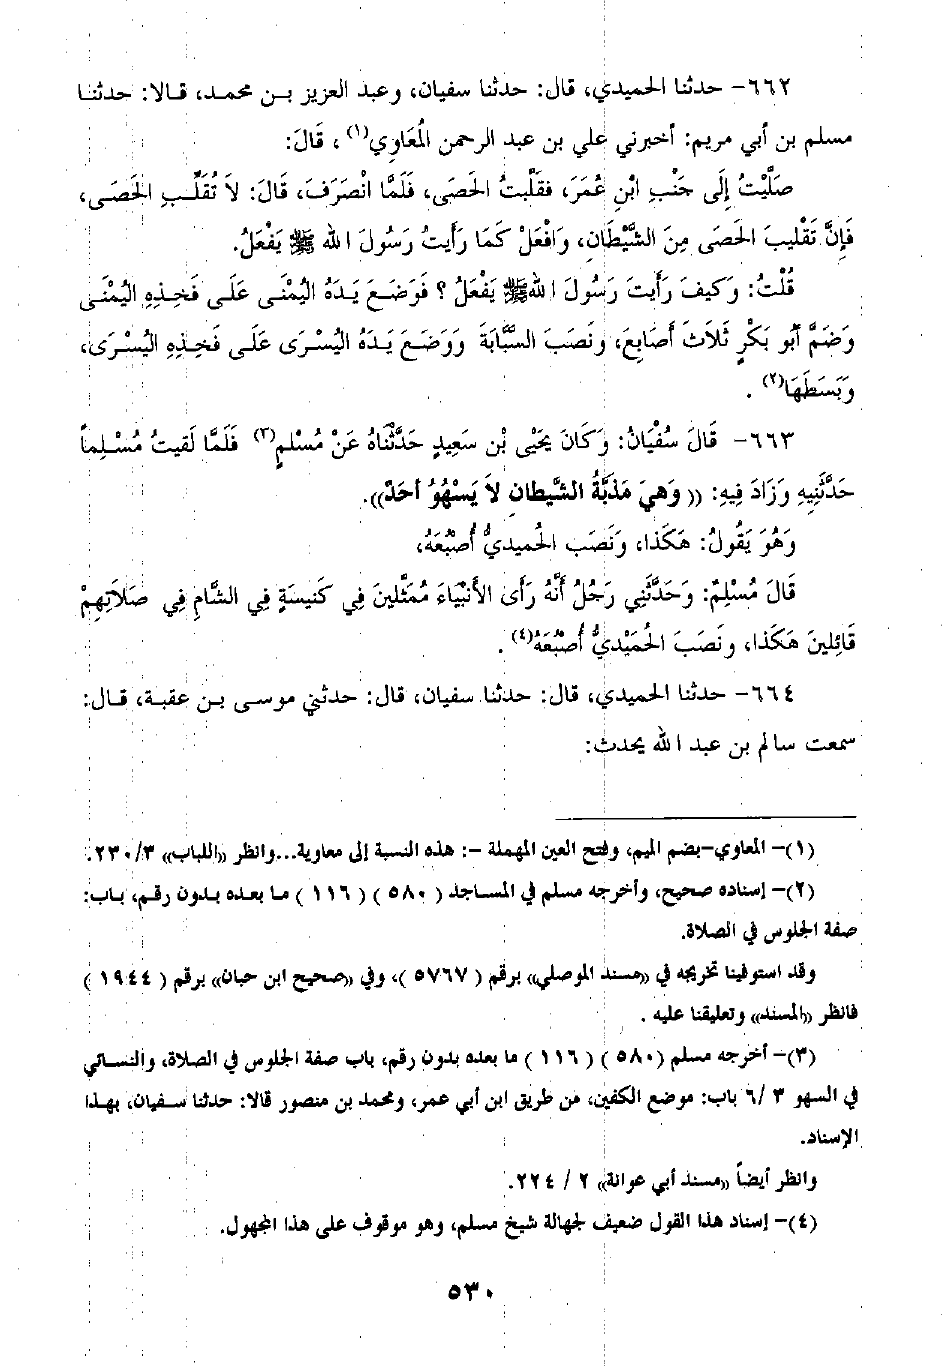 ٦٦٢- حدثنا الحميدي، قال: حدثنا سفيان، وعبد العزيز بن محمد، قالا: حدثنا
مسلم بن أبي مريم: أخبرني علي بن عبد الرحمن الْمُعَاوِي(١)، قَالَ:
صَلَّيْتُ إِلَى جَنْبِ ابْنِ عُمَرَ، فقَلَّبتُ الحَصَى، فَلَمَّا انْصَرَفَ، قَالَ: لاَ تُقَلِّبِ الحَصَى،
فَإِنَّ تَقْلِيبَ الحَصَى مِنَ الشَّيْطَانِ، وَافْعَلْ كَمَا رَأَيتُ رَسُولَ الله ﷺ يَفْعَلُ.
قُلْتُ: وَكَيفَ رَأَيتَ رَسُولَ اللهﷺ يَفْعَلُ؟ فَوَضَعَ يَدَهُ اليُمْنَى عَلَى فَخِذِهِ اليُمْنَى
وَضَمَّ أَبُو بَكْرٍ ثَلَاثَ أَصَابِعَ، وَنَصَبَ السَّبَّابَةَ وَوَضَعَ يَدَهُ اليُسْرَى عَلَى فَخِذِهِ اليُسْرَى،
وَبَسَطَهَا(٢).
٦٦٣- قَالَ سُفْيَانُ: وَكَانَ يَحْيَى بْن سَعِيدٍ حَدَّثَنَاهُ عَنْ مُسْلمٍ(٣) فَلَمَّا لَقيتُ مُسْلِماً
حَدَّثَنِيهِ وَزَادَ فِيهِ: ((وَهِيَ مَذَبَّةُ الشَّيطانِ لاَ يَسْهُوُ أَحَدٌ)).
وَهُوَ يَقُولُ: هَكَذَا، وَنَصَبَ الحُميدِيُّ أُصْبُعَهُ،
قَالَ مُسْلِمٌ: وَحَدَّثَنِي رَجُلٌ أَنَّهُ رَأَى الأَنْبِيَاءَ مُمَثَّلينَ فِي كَنِيسَةٍ فِي الشَّامِ فِي صَلَاتِهِمْ
قَائِلينَ هَكَذَا، وَنَصَبَ الحُمَيْدِيُّ أُصْبُعَهُ(٤).
٦٦٤- حدثنا الحميدي، قال: حدثنا سفيان، قال: حدثني موسى بن عقبة، قال:
سمعت سالم بن عبد الله يحدث:
(١)- المعاوي-بضم الميم، وفتح العين المهملة -: هذه النسبة إلى معاوية...وانظر ((اللباب)) ٢٣٠/٣.
(٢)- إسناده صحيح، وأخرجه مسلم في المساجد (٥٨٠) (١١٦) ما بعده بدون رقم، باب:
صفة الجلوس في الصلاة.
وقد استوفينا تخريجه في ((مسند الموصلي)) برقم (٥٧٦٧)، وفي ((صحيح ابن حبان)) برقم (١٩٤٤)
فانظر ((المسند)) وتعليقنا عليه.
(٣)- أخرجه مسلم (٥٨٠) (١١٦) ما بعده بدون رقم، باب صفة الجلوس في الصلاة، والنسائي
في السهو ٣ /٦ باب: موضع الكفين، من طريق ابن أبي عمر، ومحمد بن منصور قالا: حدثنا سفيان، بهذا
الإسناد.
وانظر أيضاً ((مسند أبي عوانة)) ٢ / ٢٢٤.
(٤)- إسناد هذا القول ضعيف لجهالة شيخ مسلم، وهو موقوف على هذا المجهول.
٥٣٠